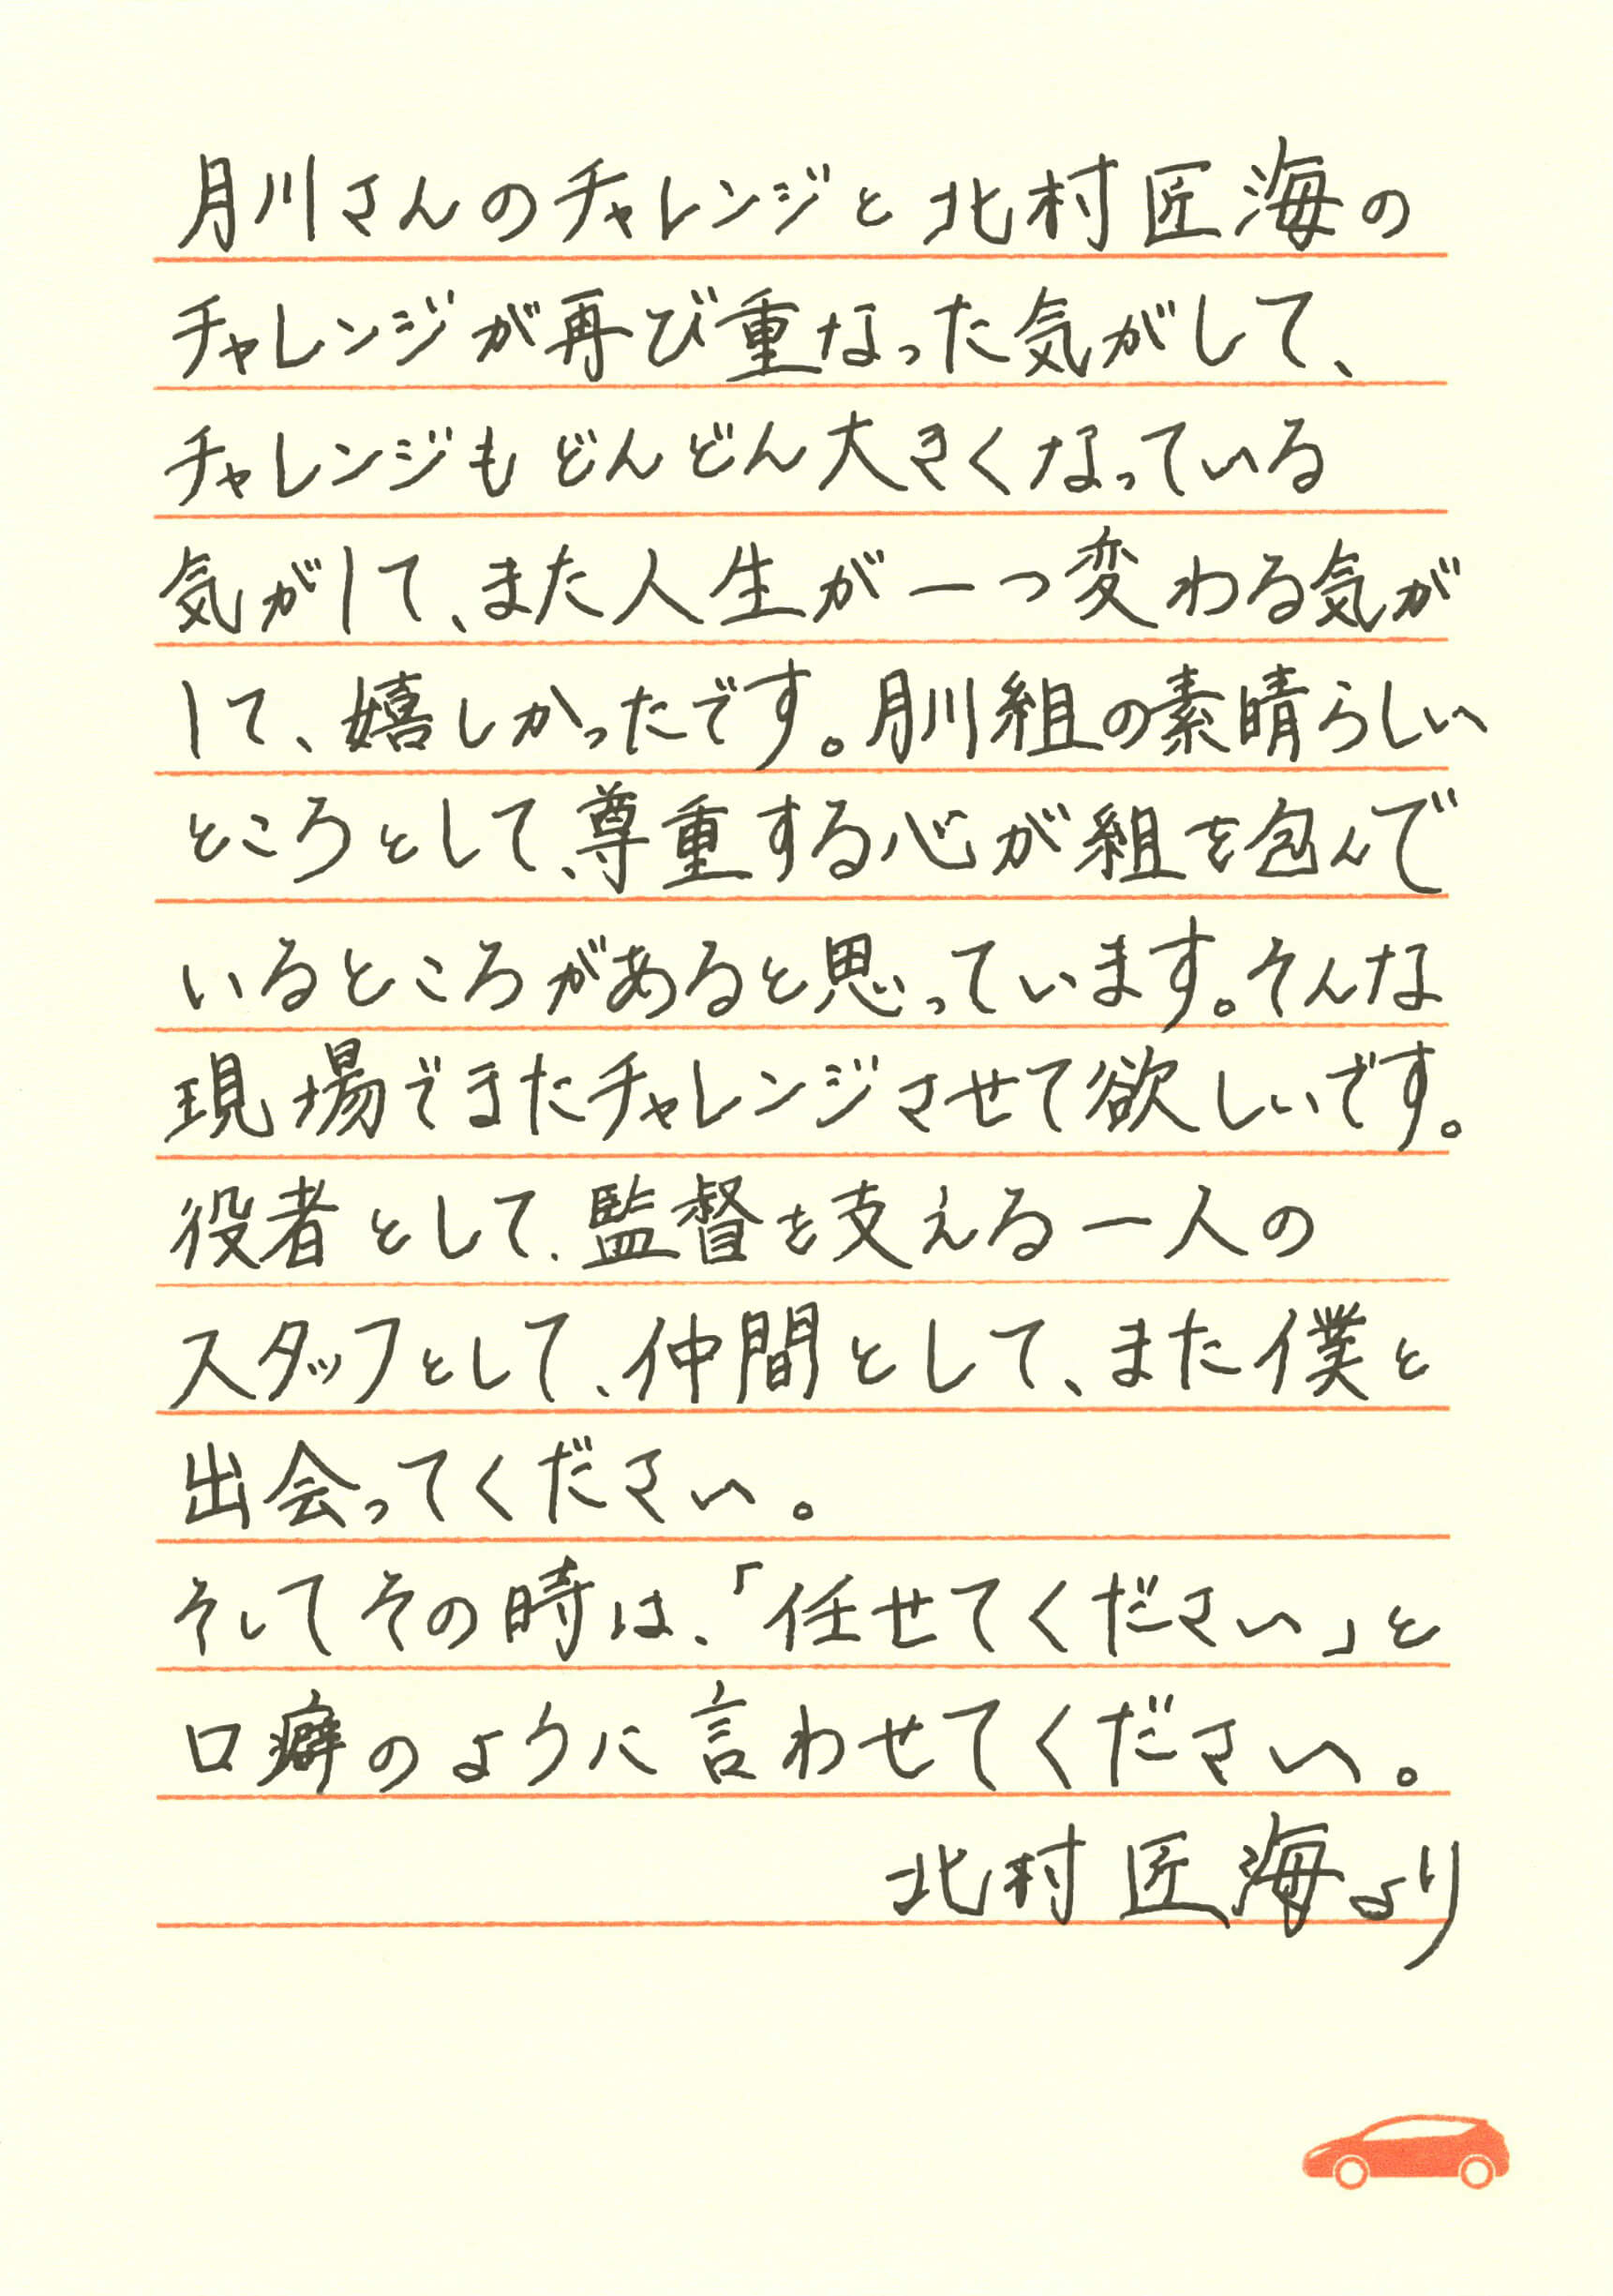 月川さんのチャレンジと北村匠海の
チャレンジが再び重なった気がして、
チャレンジもどんどん大きくなっている
気がして、また人生が一つ変わる気が
して、嬉しかったです。月川組の素晴らしい
ところとして、尊重する心が組を包んで
いるところがあると思っています。そんな
現場でまたチャレンジさせて欲しいです。
役者として、監督を支える一人の
スタッフとして、仲間として、また僕と
出会ってください。
そしてその時は、「任せてください」と
口癖のように言わせてください。
北村匠海より